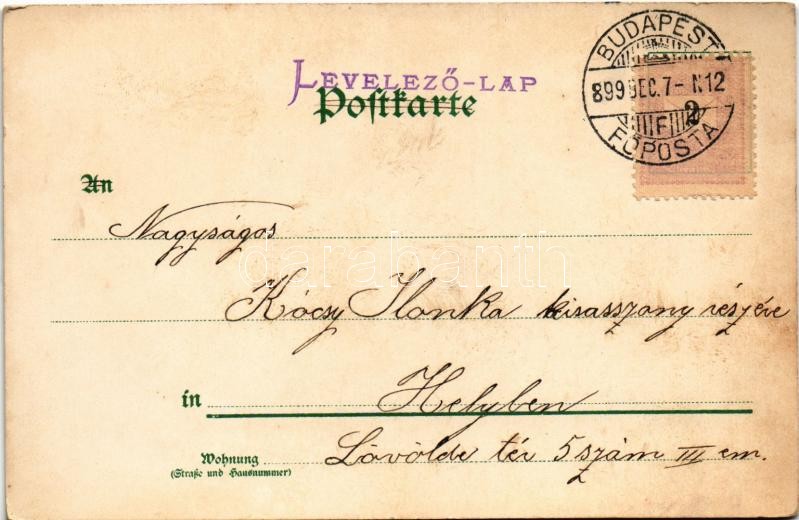 LEVELEZŐ-LAP
Postkarte
BUDAPEST
899 DEC. 7- N12
F
FŐPOSTA
2
An
Nagyságos
darabanth
Kócsy Ilonka kisasszony részére
in Helyben
Wohnung
(Straße und Hausnummer)
Lövölde tér 5 szám III em.